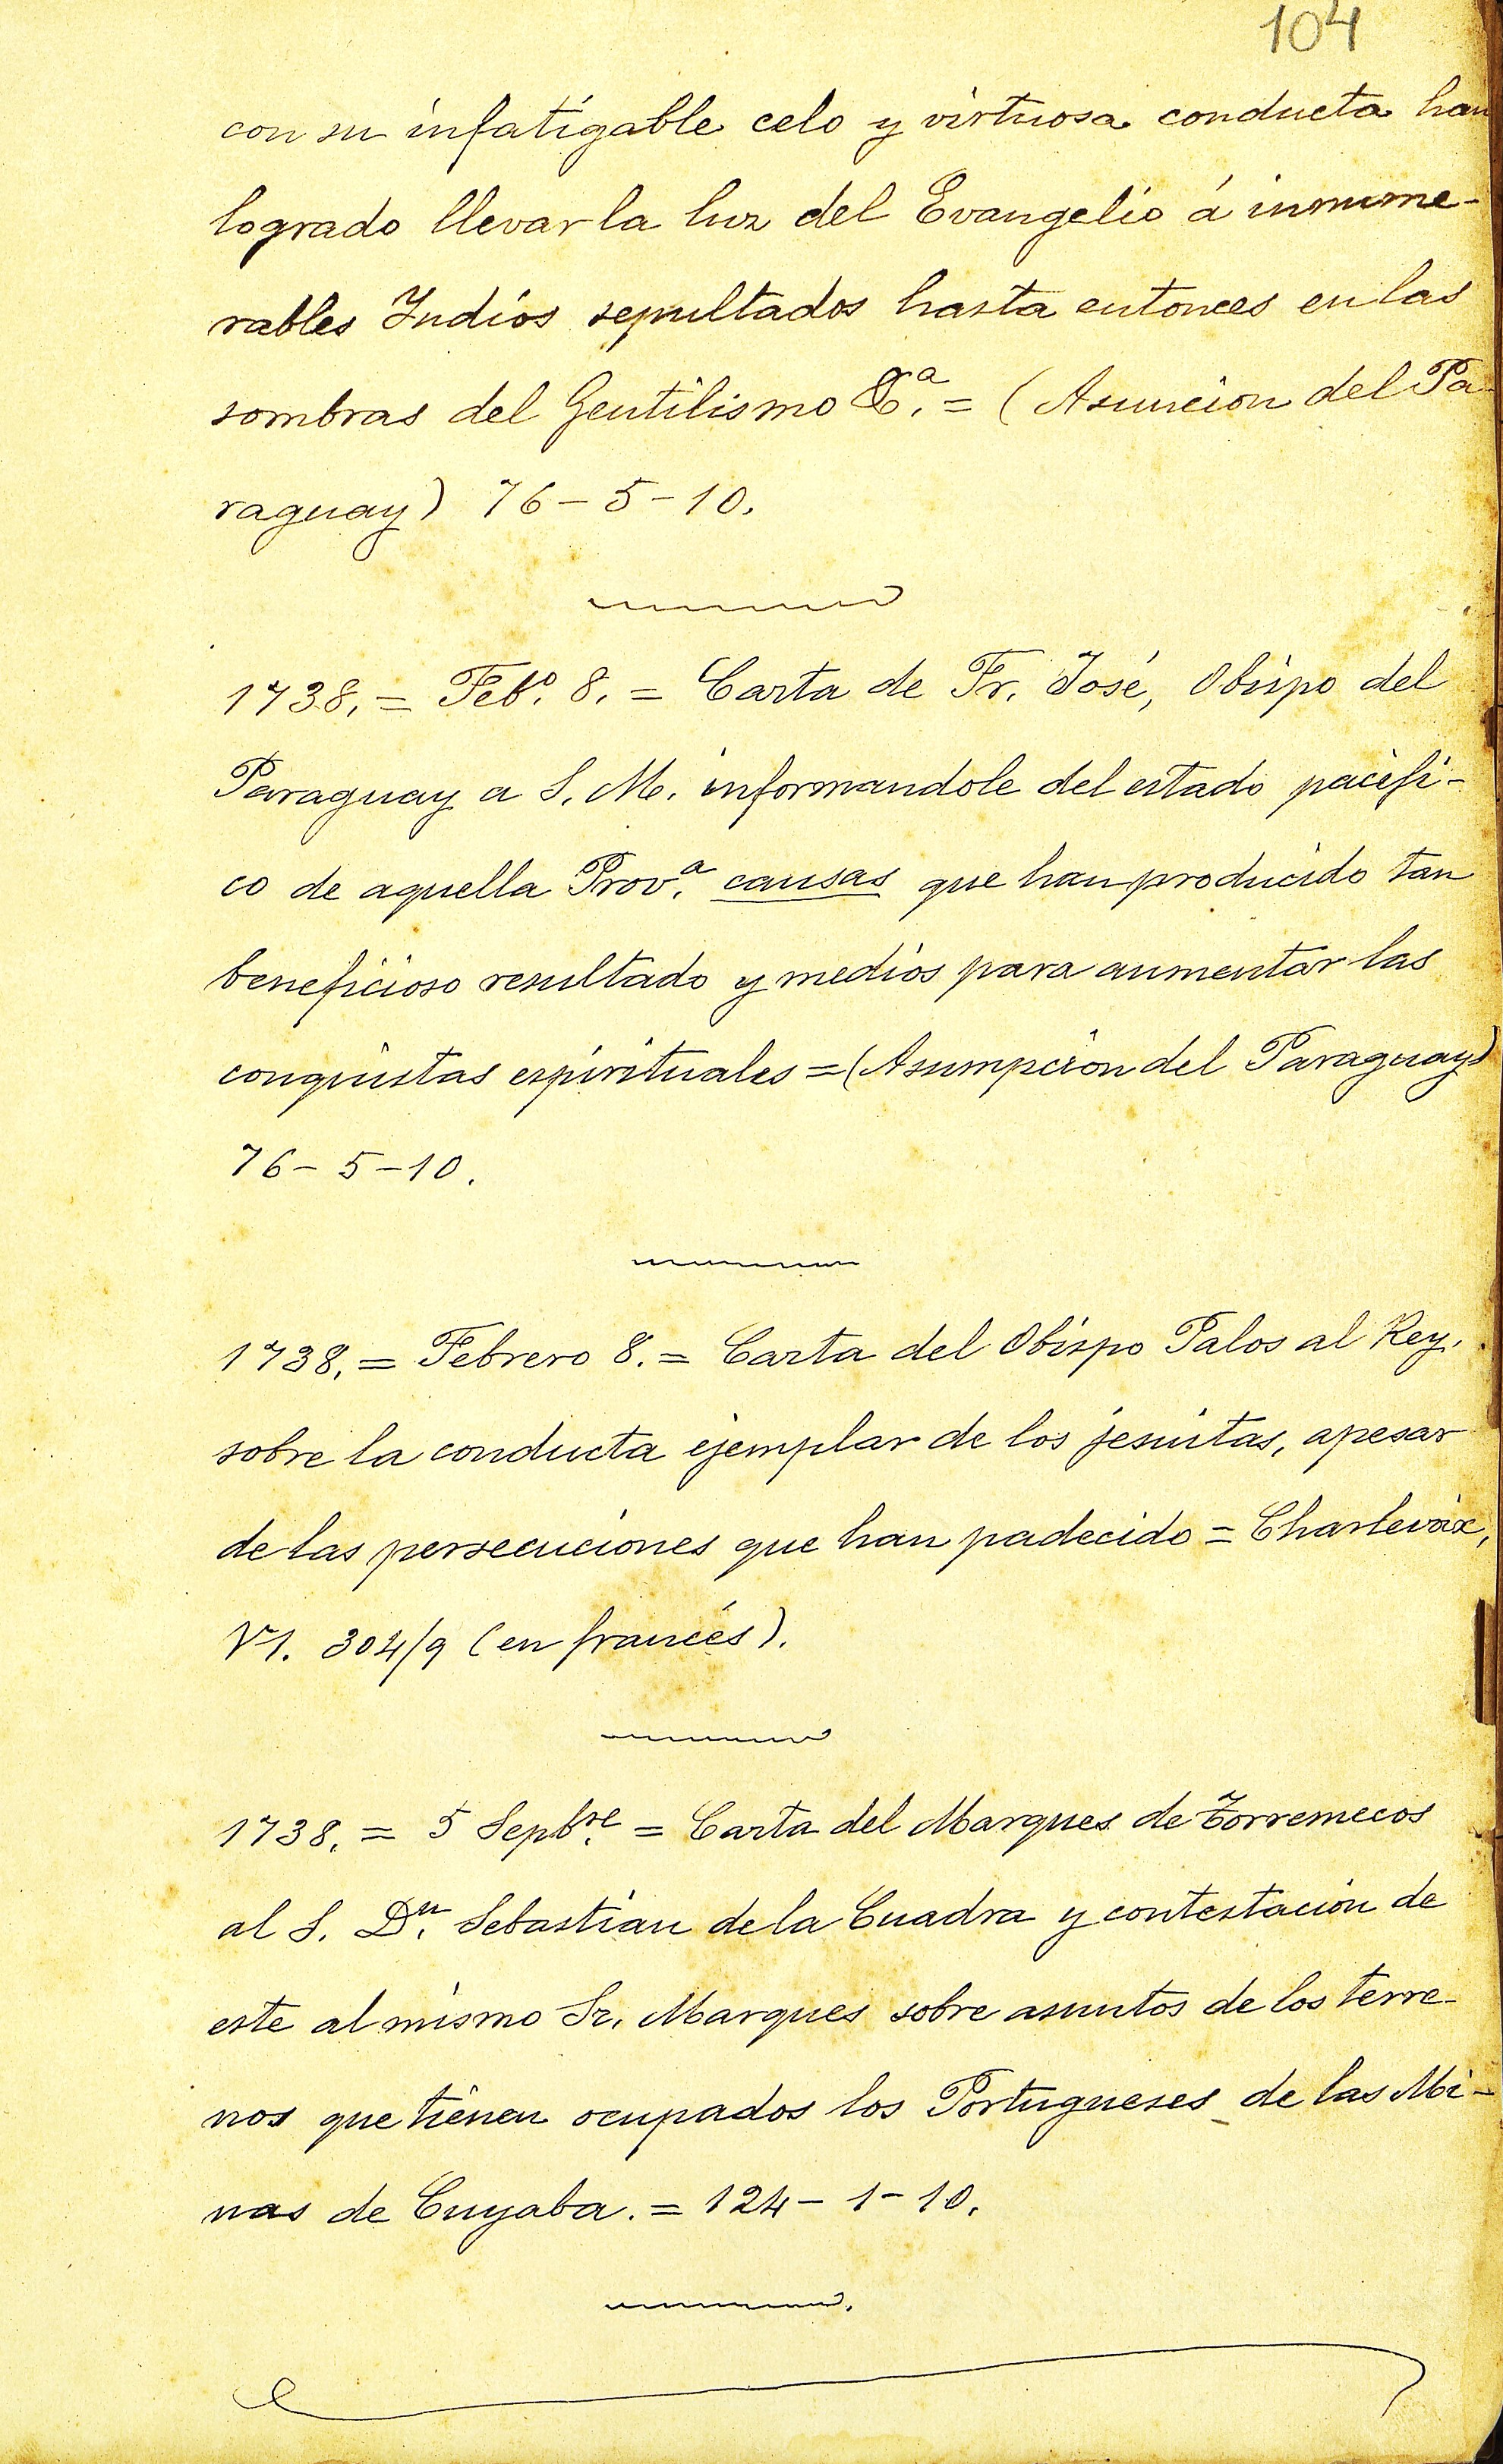 104
con su infatigable celo y virtuosa conducta han
logrado llevar la luz del Evangelio á innume-
rables Indios sepultados hasta entonces en las
sombras del Gentilismo &.ª = (Asuncion del Pa-
raguay) 76-5-10.
1738. = Feb.º 8. = Carta de Fr. José, Obispo del
Paraguay a S. M. informandole del estado pacifi-
co de aquella Prov.ª causas que han producido tan
beneficioso resultado y medios para aumentar las
conquistas espirituales = (Asumpcion del Paraguay)
76-5-10.
1738. = Febrero 8. = Carta del Obispo Palos al Rey.
sobre la conducta ejemplar de los jesuitas, apesar
de las persecuciones que han padecido = Charlevoix,
VI. 304/9 (en francés).
1738. = 5 Sepb.re = Carta del Marques de Torremecos
al S. D.n Sebastian de la Cuadra y contestacion de
este al mismo Sr. Marques sobre asuntos de los terre-
nos que tienen ocupados los Portugueses de las Mi-
nas de Cuyaba. = 124-1-10.